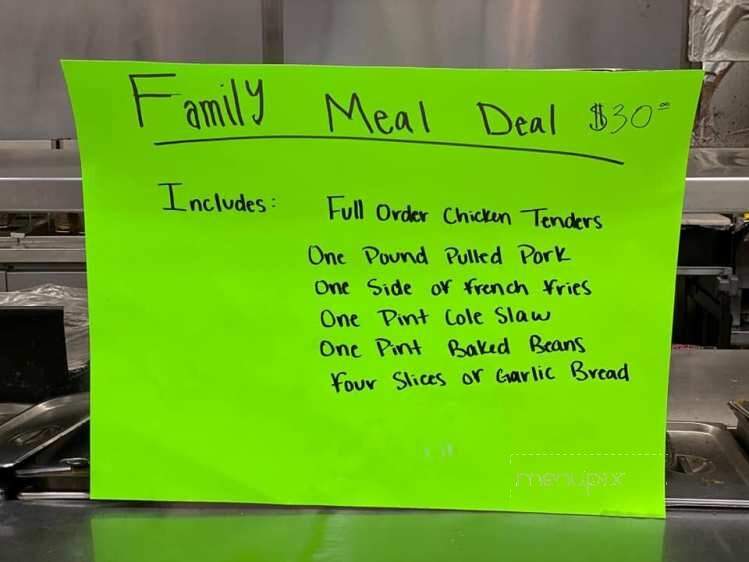 Family Meal Deal $30.00
Includes: Full Order Chicken Tenders
One Pound Pulled Pork
One Side of French Fries
One Pint Cole Slaw
One Pint Baked Beans
Four Slices of Garlic Bread
menupix